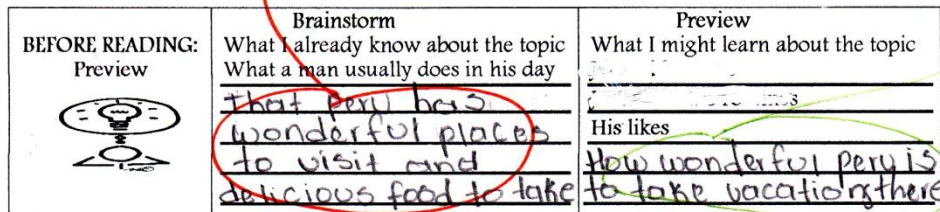 BEFORE READING:
Preview
Brainstorm
What I already know about the topic
What a man usually does in his day
that peru has
wonderful places
to visit and
delicious food to take
Preview
What I might learn about the topic
His likes
How wonderful peru is
to take vacations there